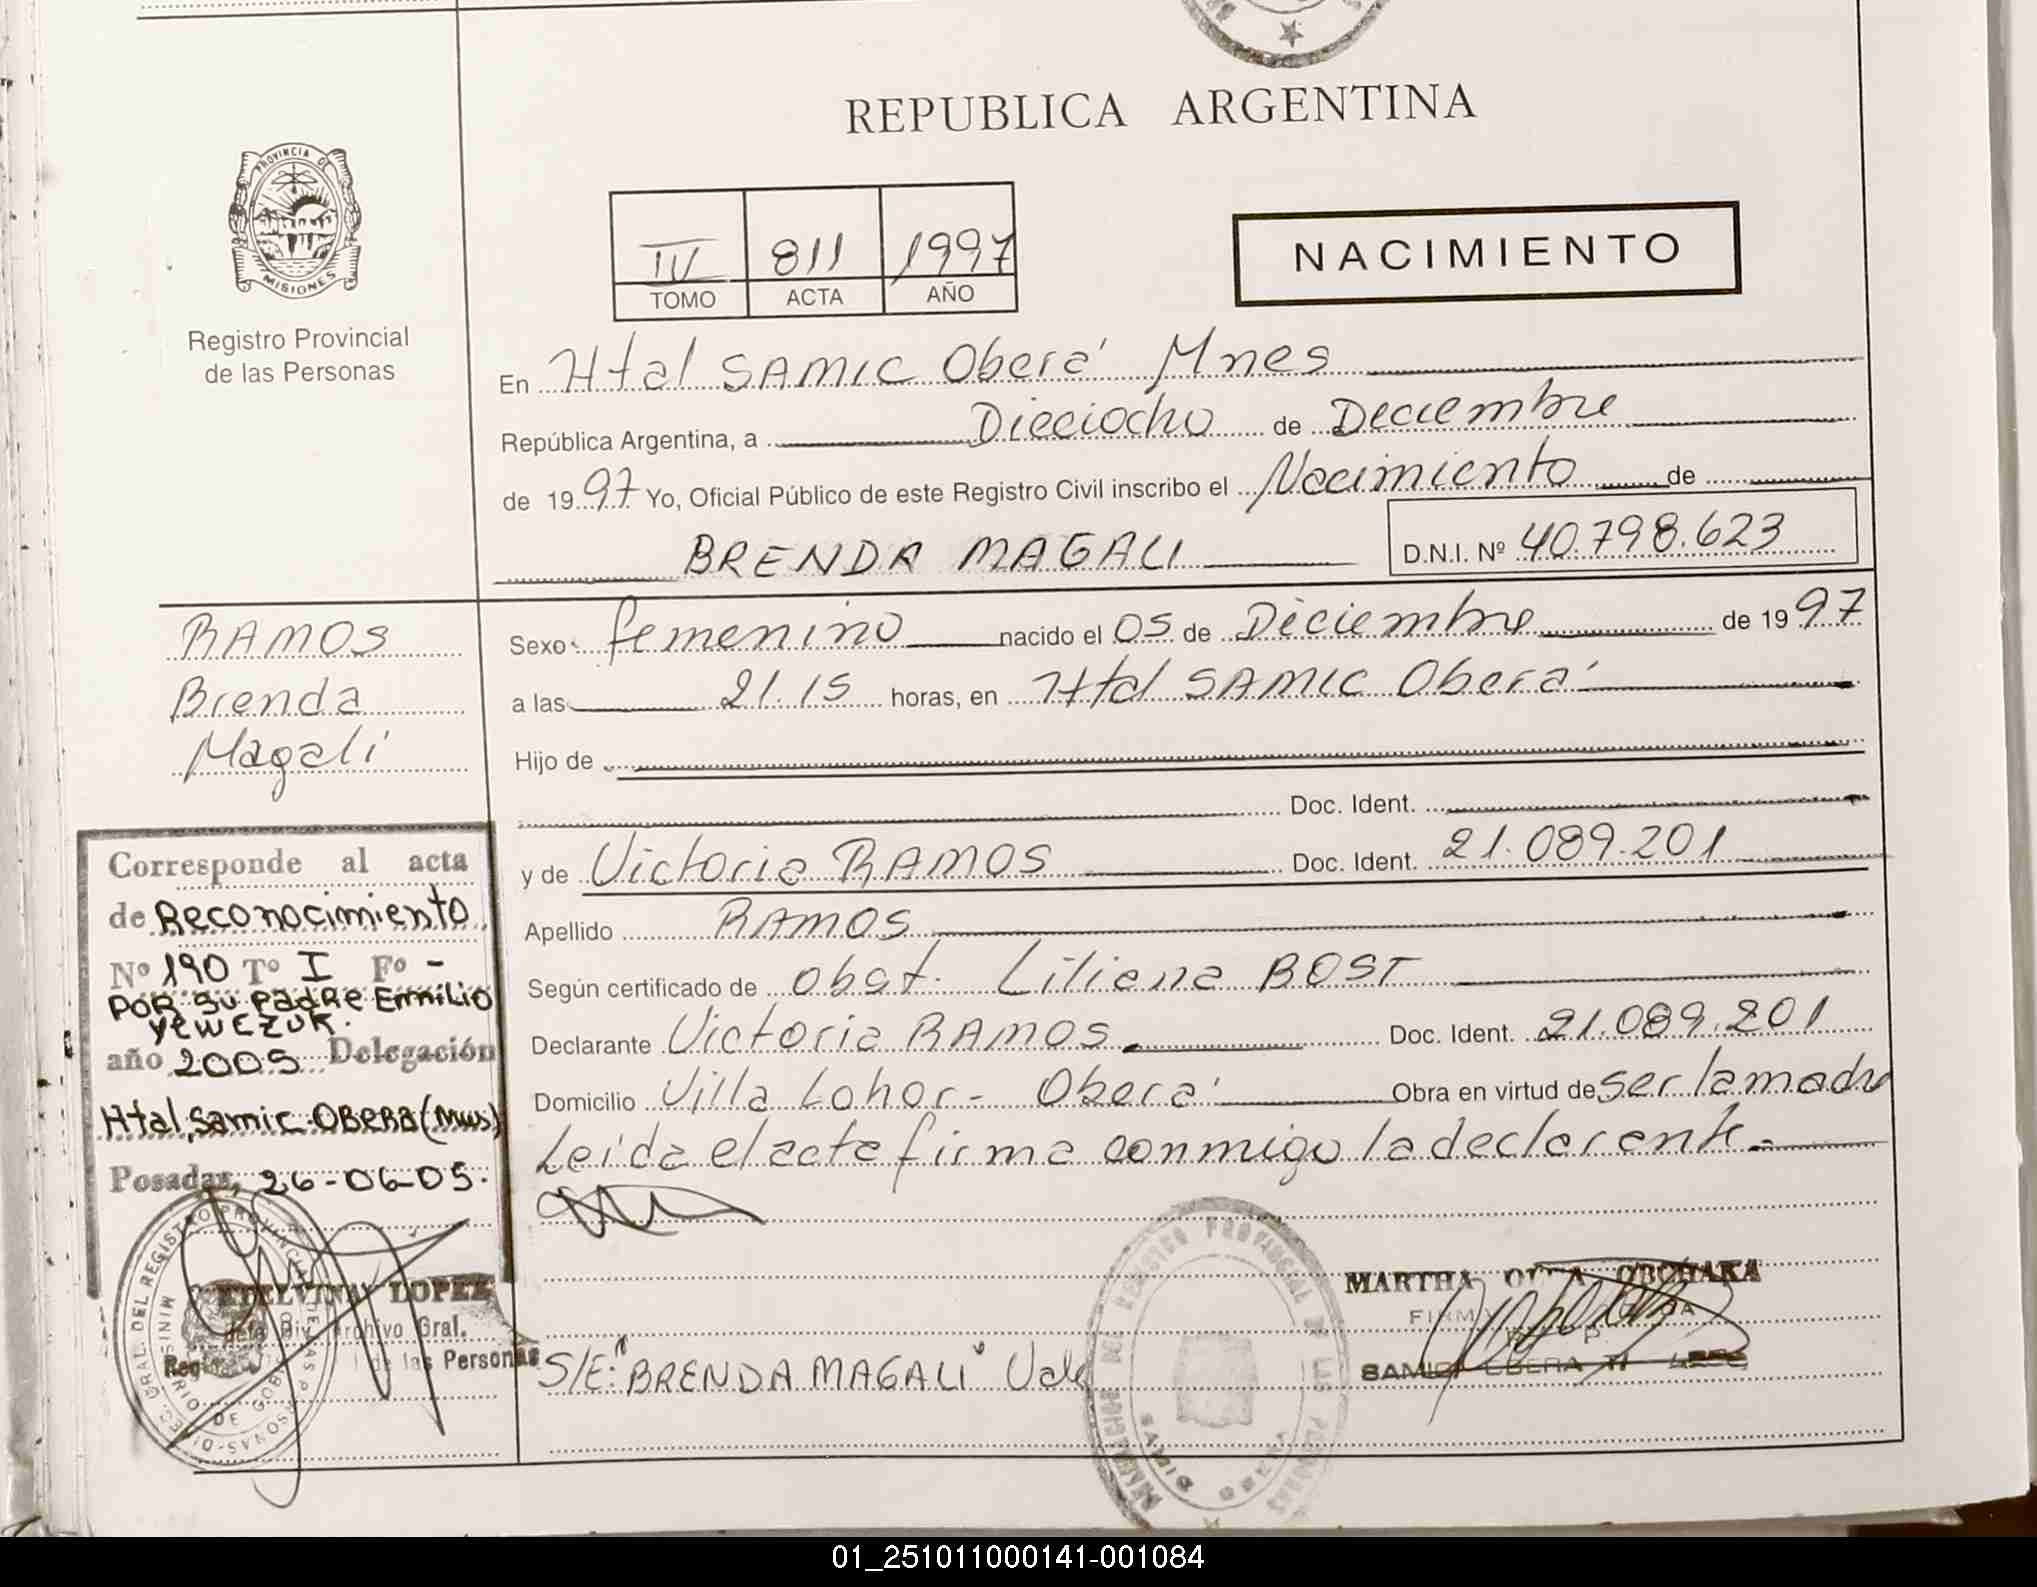 REPUBLICA ARGENTINA
PROVINCIA DE
MISIONES
Registro Provincial
de las Personas
IV 811 1997
TOMO ACTA AÑO
NACIMIENTO
En Htal SAMIC Oberá Mnes
República Argentina, a Dieciocho de Deciembre
de 1997 Yo, Oficial Público de este Registro Civil inscribo el Nacimiento de
BRENDA MAGALI D.N.I. Nº 40.798.623
RAMOS
Brenda
Magali
Sexo femenino nacido el 05 de Diciembre de 1997
a las 21.15 horas, en Htal SAMIC Oberá
Hijo de
Doc. Ident.
y de Victoria RAMOS Doc. Ident. 21.089.201
Apellido RAMOS
Según certificado de obst. Liliana BOST
Declarante Victoria RAMOS Doc. Ident. 21.089.201
Domicilio Villa Lohor - Oberá Obra en virtud de ser la madre
Leida el acta firma conmigo la declarante.
Corresponde al acta
de Reconocimiento
Nº 190 Tº I Fº -
POR su padre Emilio
Yewczuk.
año 2005 Delegación
Htal. Samic. OBERA (Mns)
Posadas, 26-06-05.
EDELVINA LOPEZ
Jefa Div. Archivo Gral.
de las Personas
MARTHA OBCHAKA
S/E: "BRENDA MAGALI" Vale
REGISTRO PROVINCIAL DE LAS PERSONAS
SAMIC
OBERA
01_251011000141-001084